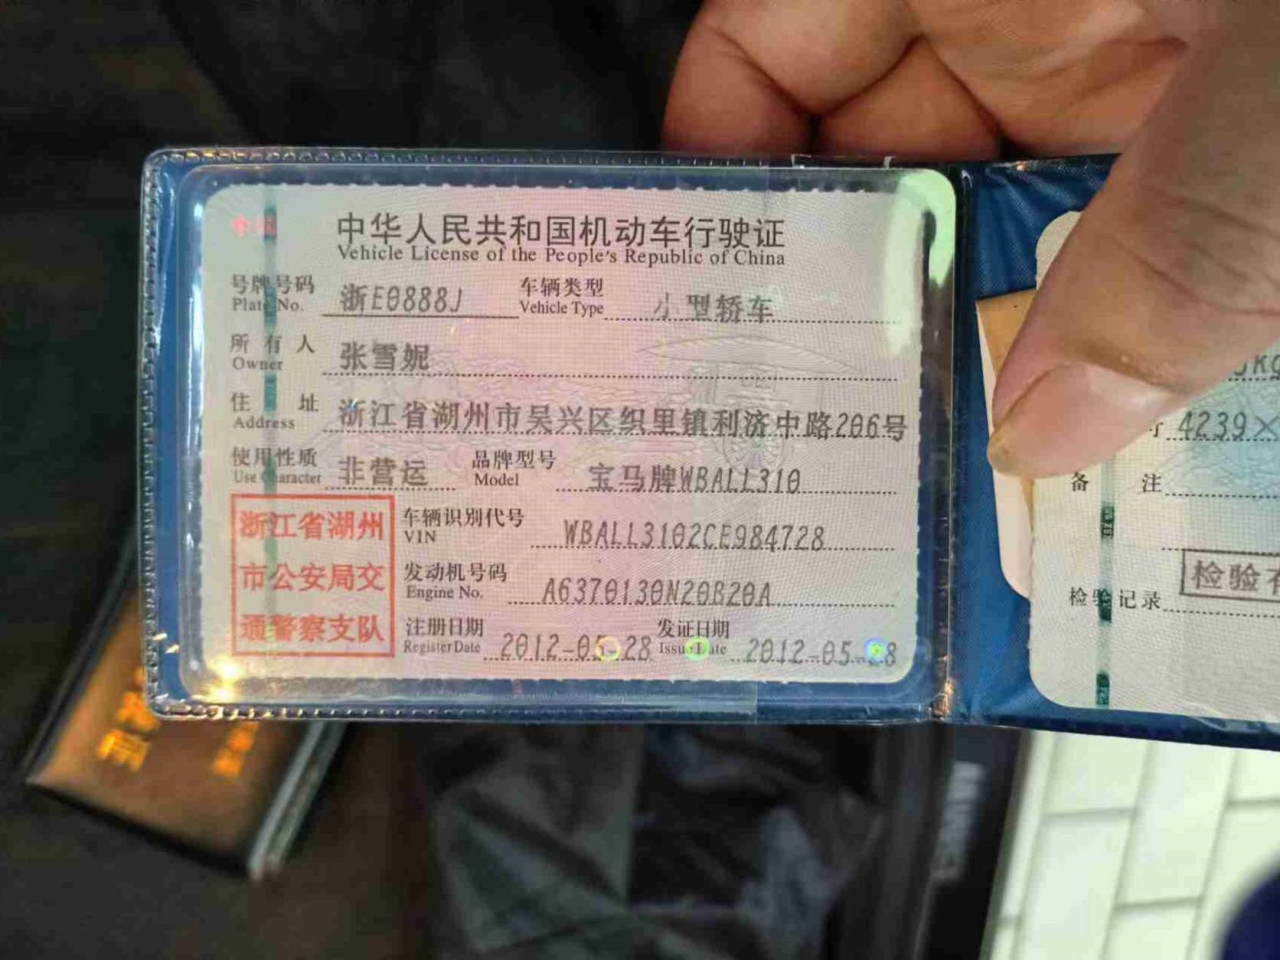 中华人民共和国机动车行驶证
Vehicle License of the People's Republic of China
号牌号码 浙E0888J 车辆类型 小型轿车
Plate No. Vehicle Type
所有人 张雪妮
Owner
住址 浙江省湖州市吴兴区织里镇利济中路206号
Address
使用性质 非营运 品牌型号 宝马牌WBALL310
Use Character Model
浙江省湖州
市公安局交
通警察支队
车辆识别代号 WBALL3102CE984728
VIN
发动机号码 A6370130N20B20A
Engine No.
注册日期 2012-05-28 发证日期 2012-05-28
Register Date Issue Date
4239×
备注
检验
检验记录